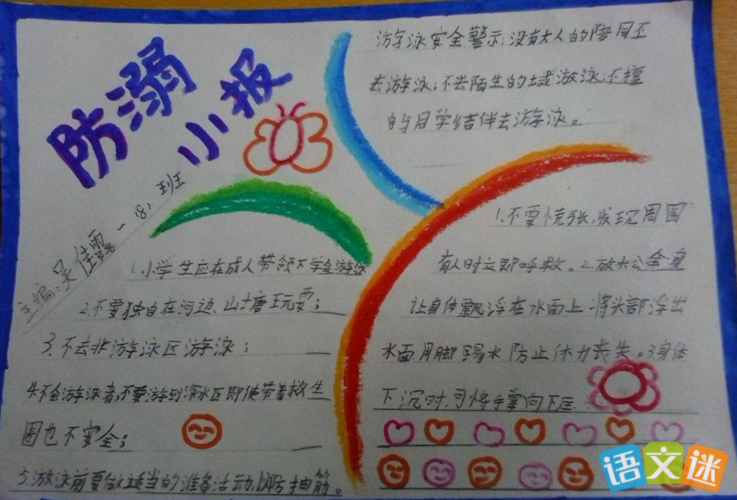 防溺
小报
主编：吴佳露 一(8)班
游泳安全警示：没有大人的陪同不
去游泳；不去陌生的土域游泳；不擅
自与同学结伴去游泳。
1.小学生应在成人带领下学会游泳
2.不要独自在河边、山塘玩耍；
3.不去非游泳区游泳；
4.不会游泳者，不要游到深水区即使带着救生
圈也不安全；
5.游泳前要做适当的准备活动，以防抽筋。
1.不要慌张，发现周围
有人时立即呼救。2.放松全身
让身体飘浮在水面上 将头部浮出
水面用脚踢水防止体力丧失。3.身体
下沉时，可将手掌向下压
语文迷